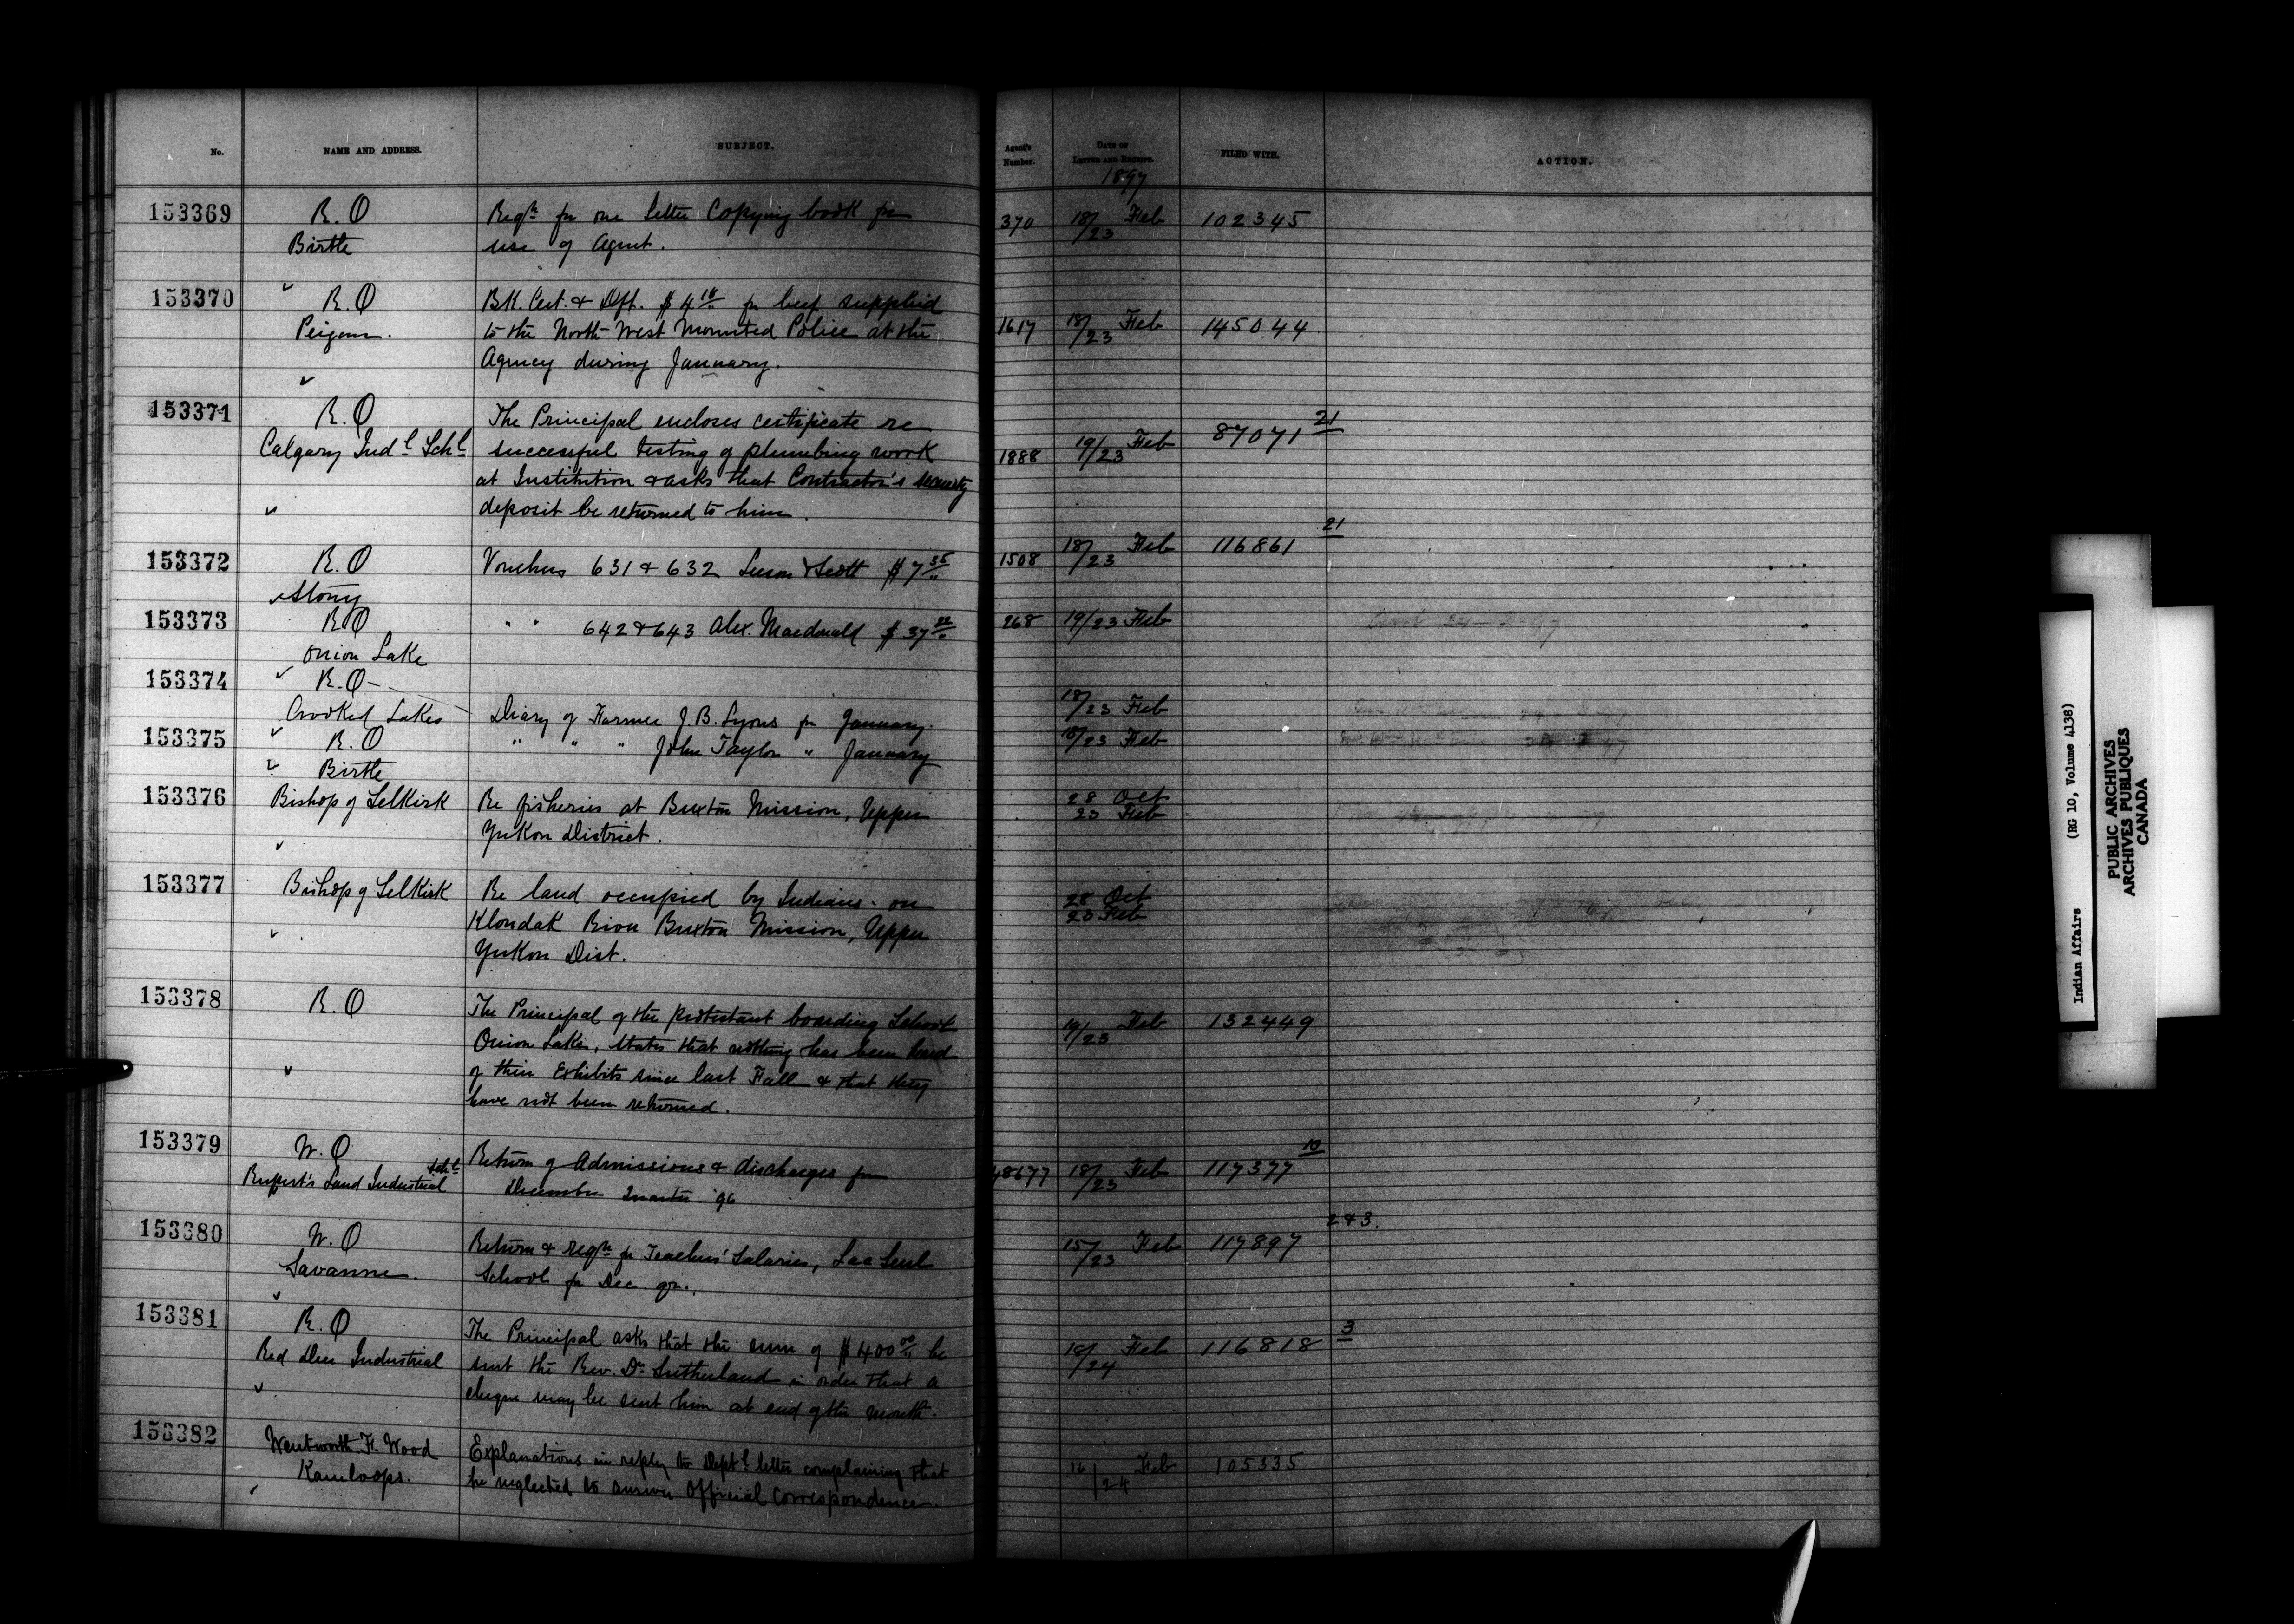 No. NAME AND ADDRESS. SUBJECT. Agent's Number. DATE OF LETTER AND RECEIPT. FILED WITH. ACTION.
1897
153369 R.O Reqn for one Letter Copying book for 370 18/23 Feb 102345
Birtle use of Agent.
153370 R.O BK. Cert. & Dft. $4 for beef supplied
Peigan. to the North-West Mounted Police at the 1617 18/23 Feb 145044
Agency during January.
153371 R.O The Principal encloses certificate re 87071 21
Calgary Indl Schl successful testing of plumbing work 1888 19/23 Feb
at Institution & asks that Contractor's security
deposit be returned to him.
21
153372 R.O Vouchers 631 & 632 Leeson & Scott $7 35 1508 18/23 Feb 116861
Stony
153373 R.O " " 642 & 643 Alex. Macdonald $37 268 19/23 Feb
Onion Lake
153374 R.O
Crooked Lakes Diary of Farmer J.B. Lyons for January. 18/23 Feb
153375 R.O " " " John Taylor " January 18/23 Feb
Birtle
153376 Bishop of Selkirk Re fisheries at Buxton Mission, Upper 28 Oct
Yukon District. 23 Feb
153377 Bishop of Selkirk Re land occupied by Indians on 28 Oct
Klondak River Buxton Mission, Upper 23 Feb
Yukon Dist.
153378 R.O The Principal of the protestant boarding School 19/23 Feb 132449
Onion Lake, states that nothing has been heard
of their Exhibits since last Fall & that they
have not been returned.
153379 W.O Return of Admissions & discharges for 48677 18/23 Feb 117377 10
Rupert's Land Industrial Schl December Quarter '96
153380 W.O Return & reqn for Teachers' Salaries, Lac Seul 15/23 Feb 117897 2&3.
Savanne. School for Dec qr.
153381 R.O The Principal asks that the sum of $400 00 be 18/24 Feb 116818 3
Red Deer Industrial sent the Rev. Dr Sutherland in order that a
cheque may be sent him at end of the month.
153382 Wentworth F. Wood Explanations in reply to Deptl letter complaining that 16/24 Feb 105335
Kamloops. he neglected to answer Official Correspondence.
Indian Affairs (RG 10, Volume 4138)
PUBLIC ARCHIVES
ARCHIVES PUBLIQUES
CANADA